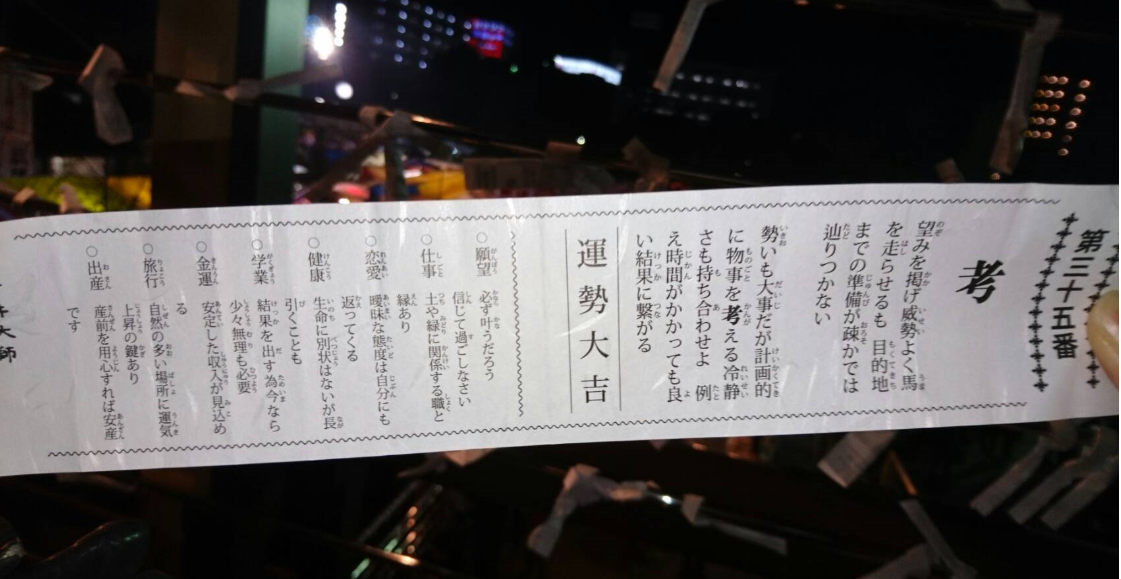 第三十五番
考
望みを掲げ威勢よく馬
を走らせるも 目的地
までの準備が疎かでは
辿りつかない
勢いも大事だが計画的
に物事を考える冷静
さも持ち合わせよ 例
え時間がかかっても良
い結果に繋がる
運勢大吉
○願望 必ず叶うだろう
信じて過ごしなさい
○仕事 土や緑に関係する職と
縁あり
○恋愛 曖昧な態度は自分にも
返ってくる
○健康 生命に別状はないが長
引くことも
○学業 結果を出す為今なら
少々無理も必要
○金運 安定した収入が見込め
る
○旅行 自然の多い場所に運気
上昇の鍵あり
○出産 産前を用心すれば安産
です
大師